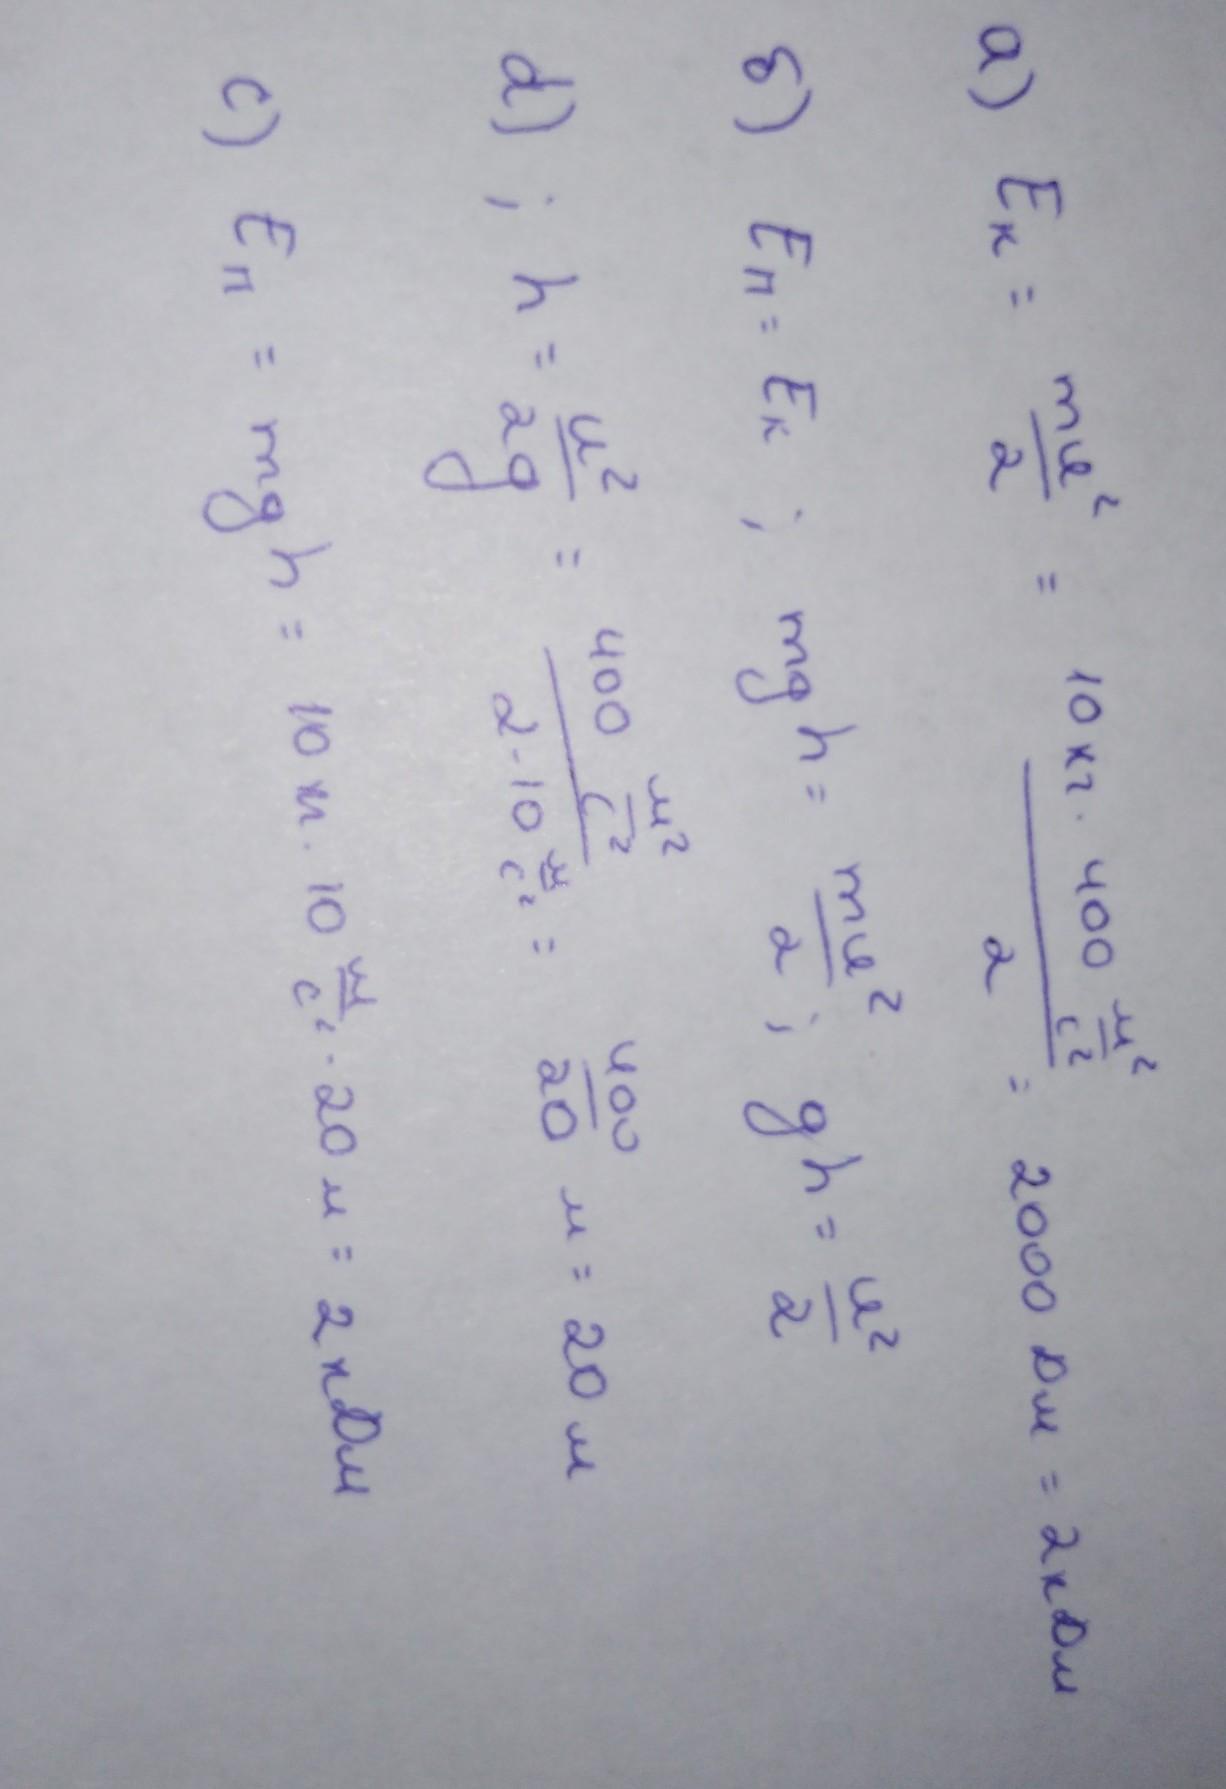 а) Eк = mv²/2 = 10 кг · 400 м²/с² / 2 = 2000 Дж = 2 кДж
б) Eп = Eк ; mgh = mv²/2 ; gh = v²/2
d) ; h = v²/2g = 400 м²/с² / 2·10 м/с² = 400/20 м = 20 м
c) Eп = mgh = 10 кг · 10 м/с² · 20 м = 2 кДж